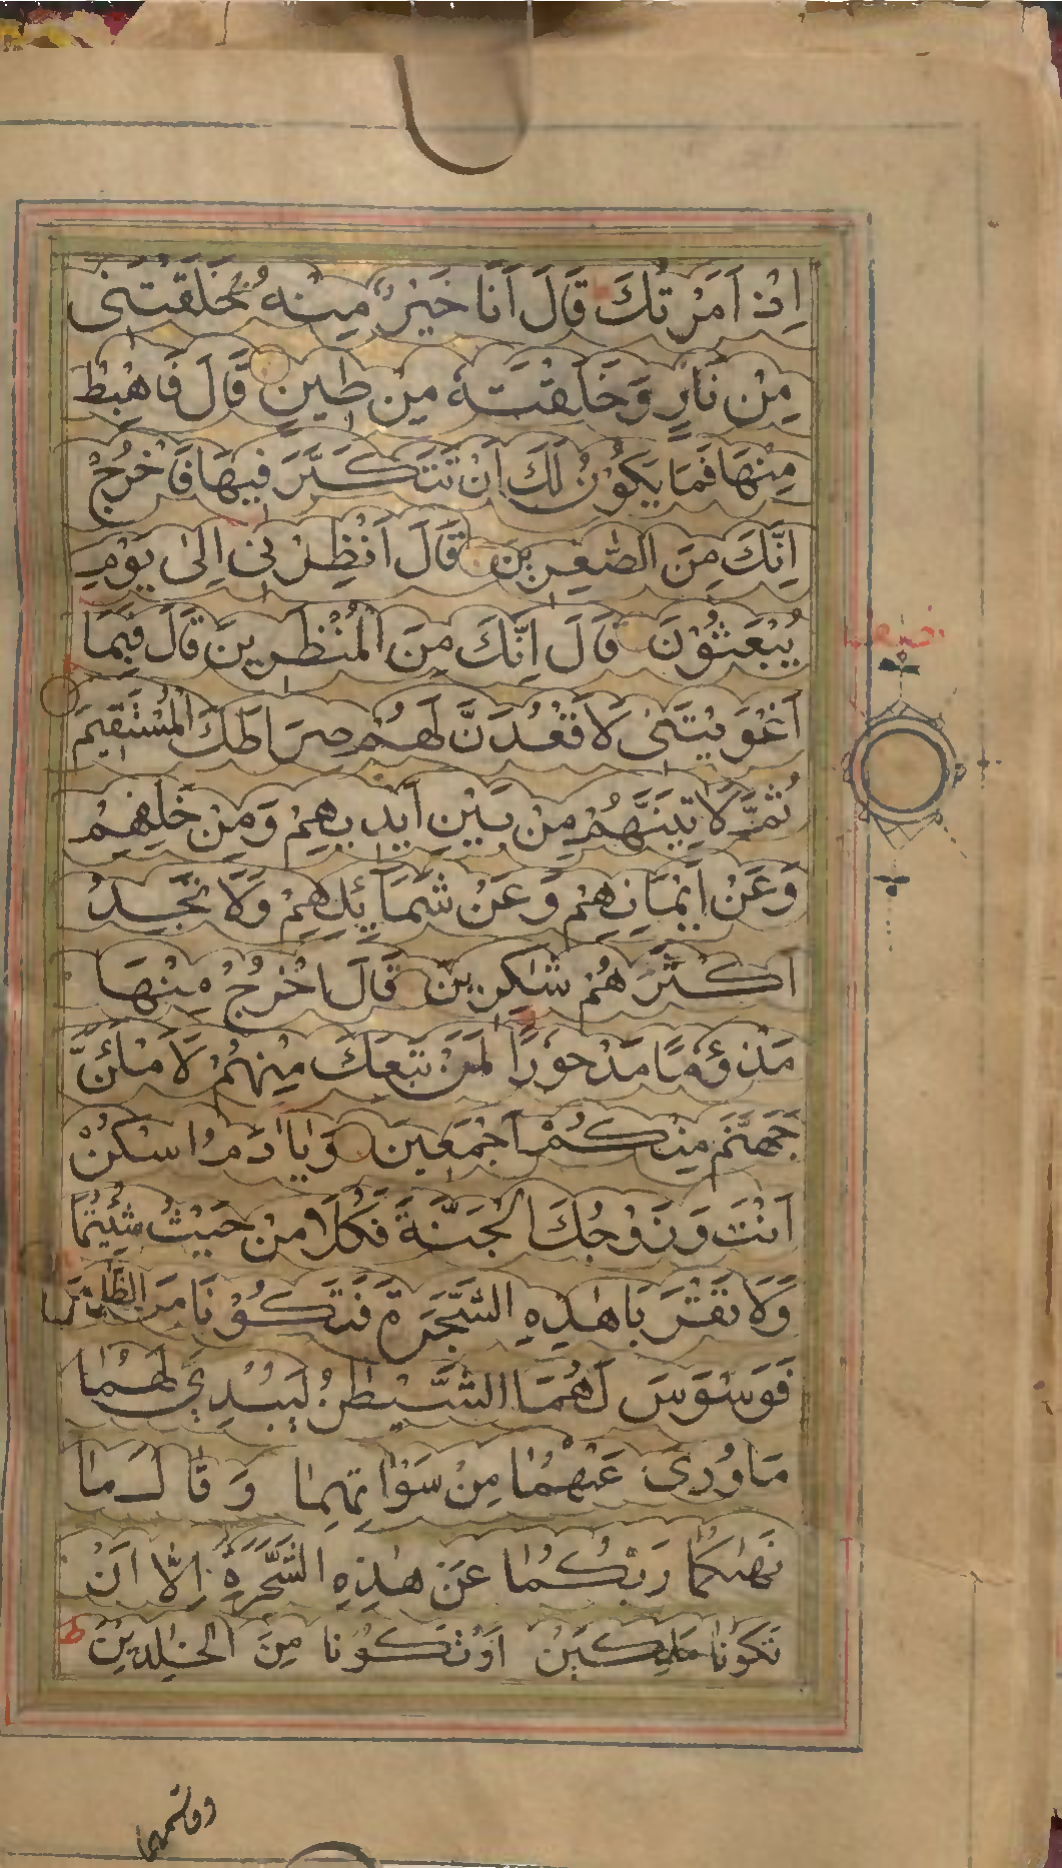 اِذْ اَمَرْتُكَ قَالَ اَنَا خَيْرٌ مِنْهُ خَلَقْتَنِى
مِنْ نَارٍ وَخَلَقْتَهُ مِنْ طِينٍ قَالَ فَاهْبِطْ
مِنْهَا فَمَا يَكُوْنُ لَكَ اَنْ تَتَكَبَّرَ فِيهَا فَاخْرُجْ
اِنَّكَ مِنَ الصّٰغِرِينَ قَالَ اَنْظِرْنِى اِلٰى يَوْمِ
يُبْعَثُوْنَ قَالَ اِنَّكَ مِنَ الْمُنْظَرِينَ قَالَ فَبِمَا
اَغْوَيْتَنِى لَاَقْعُدَنَّ لَهُمْ صِرَاطَكَ الْمُسْتَقِيمَ
ثُمَّ لَاٰتِيَنَّهُمْ مِنْ بَيْنِ اَيْدِيهِمْ وَمِنْ خَلْفِهِمْ
وَعَنْ اَيْمَانِهِمْ وَعَنْ شَمَائِلِهِمْ وَلَا تَجِدُ
اَكْثَرَهُمْ شٰكِرِينَ قَالَ اخْرُجْ مِنْهَا
مَذْؤُمًا مَدْحُوْرًا لَمَنْ تَبِعَكَ مِنْهُمْ لَاَمْلَئَنَّ
جَهَنَّمَ مِنْكُمْ اَجْمَعِينَ وَيَااٰدَمُ اسْكُنْ
اَنْتَ وَزَوْجُكَ الْجَنَّةَ فَكُلَا مِنْ حَيْثُ شِئْتُمَا
وَلَا تَقْرَبَا هٰذِهِ الشَّجَرَةَ فَتَكُوْنَا مِنَ الظّٰلِمِينَ
فَوَسْوَسَ لَهُمَا الشَّيْطٰنُ لِيُبْدِىَ لَهُمَا
مَا وُرِىَ عَنْهُمَا مِنْ سَوْاٰتِهِمَا وَقَالَ مَا
نَهٰكُمَا رَبُّكُمَا عَنْ هٰذِهِ الشَّجَرَةِ اِلَّا اَنْ
تَكُوْنَا مَلَكَيْنِ اَوْ تَكُوْنَا مِنَ الْخٰلِدِينَ ط
وقاسمهما